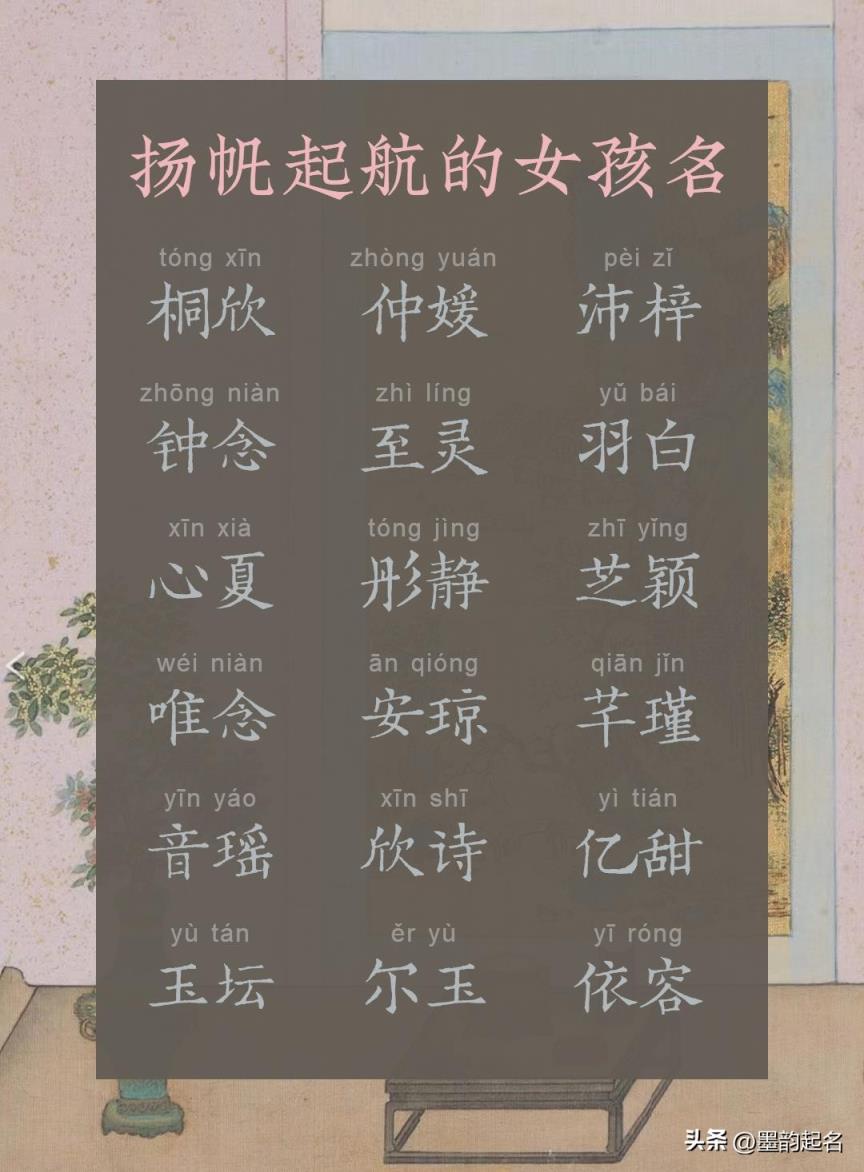 扬帆起航的女孩名
tóng xīn zhòng yuán pèi zǐ
桐欣 仲媛 沛梓
zhōng niàn zhì líng yǔ bái
钟念 至灵 羽白
xīn xià tóng jìng zhī yǐng
心夏 彤静 芝颖
wéi niàn ān qióng qiān jǐn
唯念 安琼 芊瑾
yīn yáo xīn shī yì tián
音瑶 欣诗 亿甜
yù tán ěr yù yī róng
玉坛 尔玉 依容
头条 @墨韵起名